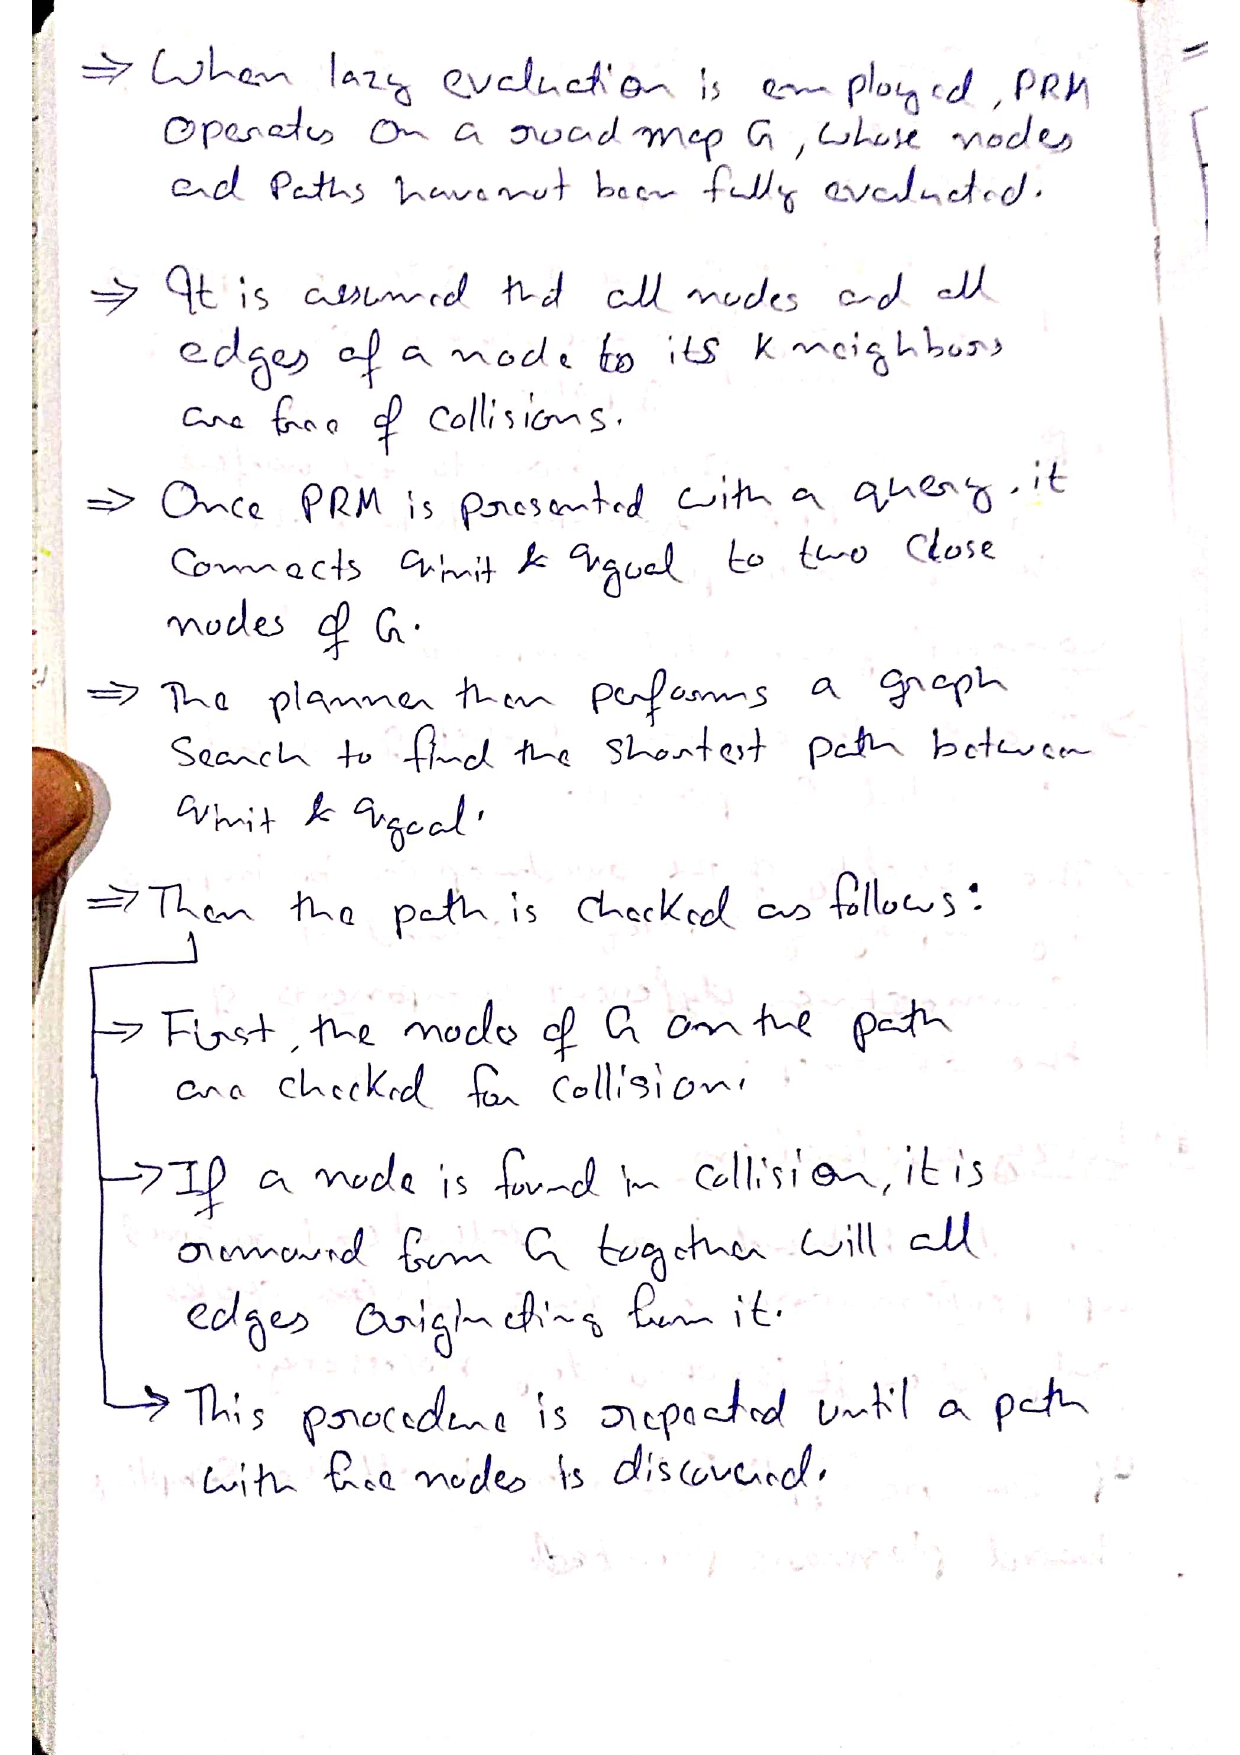 ⇒ When lazy evaluation is employed, PRM
operates on a road map G, whose nodes
and Paths have not been fully evaluated.
⇒ It is assumed that all nodes and all
edges of a node to its K neighbors
are free of collisions.
⇒ Once PRM is presented with a query, it
Connects qinit & qgoal to two close
nodes of G.
⇒ The planner then performs a graph
Search to find the shortest path between
qinit & qgoal.
⇒ Then the path is checked as follows:
⇒ First, the nodes of G on the path
are checked for collision.
→ If a node is found in collision, it is
removed from G together will all
edges originating from it.
→ This procedure is repeated until a path
with free nodes is discovered.